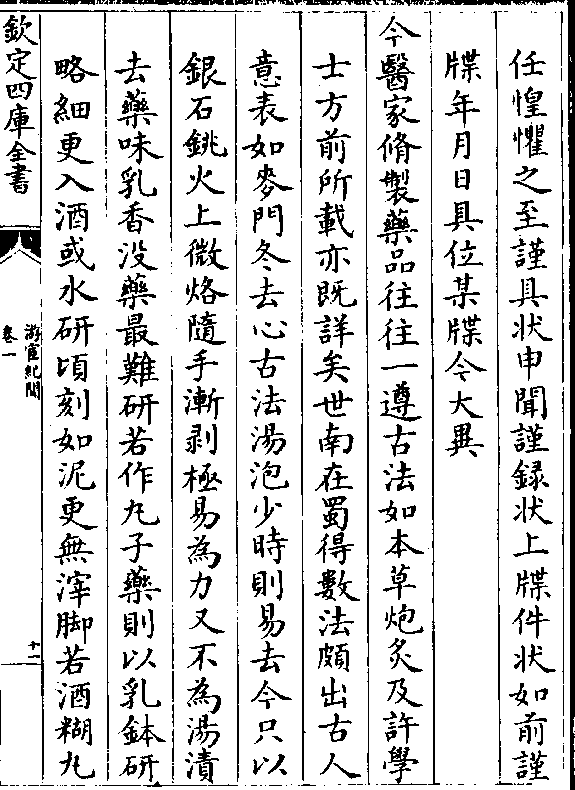 任惶懼之至謹具状申聞謹録状上牒件状如前謹
牒年月日具位某牒今大異
今醫家脩製藥品往往一遵古法如本草炮炙及許學
士方前所載亦既詳矣世南在蜀得數法頗出古人
意表如麥門冬去心古法湯泡少時則易去今只以
銀石銚火上微烙隨手漸剥極易為力又不為湯漬
去藥味乳香没藥最難研若作丸子藥則以乳鉢研
略細更入酒或水研頃刻如泥更無滓脚若酒糊丸
欽定四庫全書
游宦紀聞
卷一
十一